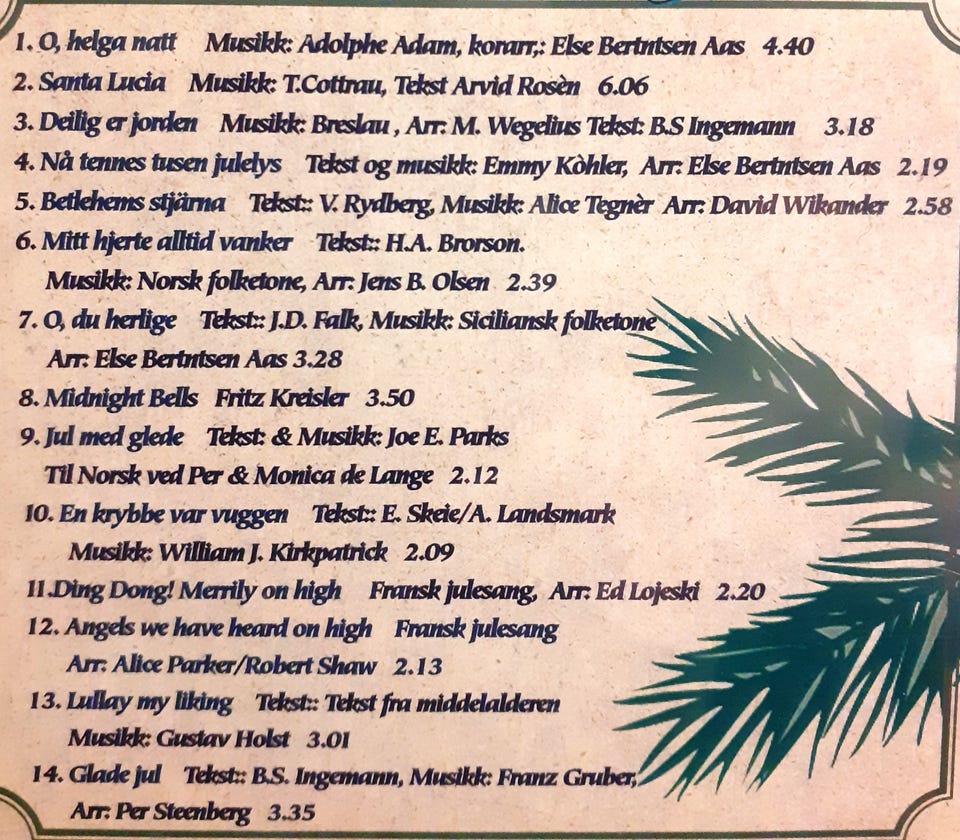 1. O, helga natt Musikk: Adolphe Adam, korarr,: Else Berntntsen Aas 4.40
2. Santa Lucia Musikk: T.Cottrau, Tekst Arvid Rosèn 6.06
3. Deilig er jorden Musikk: Breslau , Arr: M. Wegelius Tekst: B.S Ingemann 3.18
4. Nå tennes tusen julelys Tekst og musikk: Emmy Kòhler, Arr: Else Bertntsen Aas 2.19
5. Betlehems stjärna Tekst:: V. Rydberg, Musikk: Alice Tegnèr Arr: David Wikander 2.58
6. Mitt hjerte alltid vanker Tekst:: H.A. Brorson.
Musikk: Norsk folketone, Arr: Jens B. Olsen 2.39
7. O, du herlige Tekst:: J.D. Falk, Musikk: Siciliansk folketone
Arr: Else Bertntsen Aas 3.28
8. Midnight Bells Fritz Kreisler 3.50
9. Jul med glede Tekst: & Musikk: Joe E. Parks
Til Norsk ved Per & Monica de Lange 2.12
10. En krybbe var vuggen Tekst:: E. Skeie/A. Landsmark
Musikk: William J. Kirkpatrick 2.09
11.Ding Dong! Merrily on high Fransk julesang, Arr: Ed Lojeski 2.20
12. Angels we have heard on high Fransk julesang
Arr: Alice Parker/Robert Shaw 2.13
13. Lullay my liking Tekst:: Tekst fra middelalderen
Musikk: Gustav Holst 3.01
14. Glade jul Tekst:: B.S. Ingemann, Musikk: Franz Gruber,
Arr: Per Steenberg 3.35